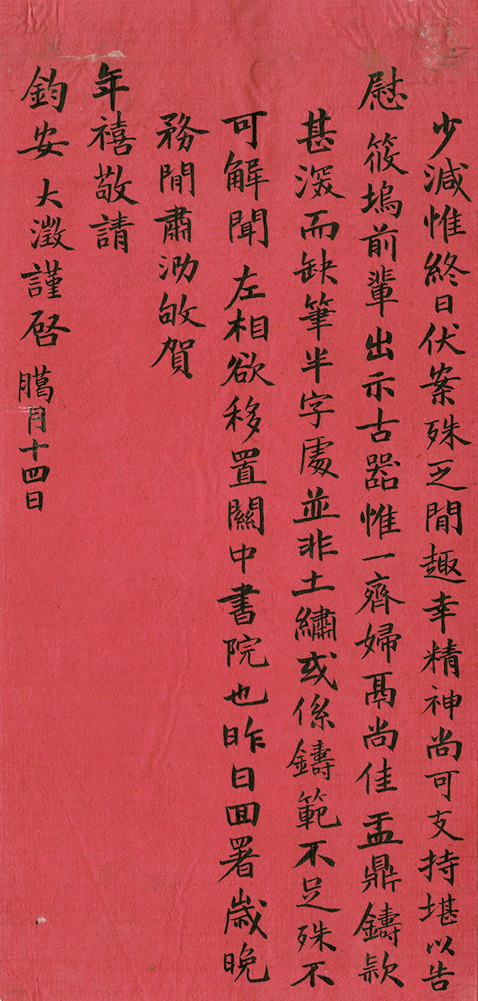 少減惟終日伏案殊乏閒趣幸精神尚可支持堪以告
慰筱塢前輩出示古器惟一齊婦鬲尚佳盂鼎鑄款
甚深而缺筆半字處並非土繡或係鑄範不足殊不
可解聞左相欲移置關中書院也昨日回署歲晚
務閒肅泐敂賀
年禧敬請
鈞安大澂謹啓臘月十四日